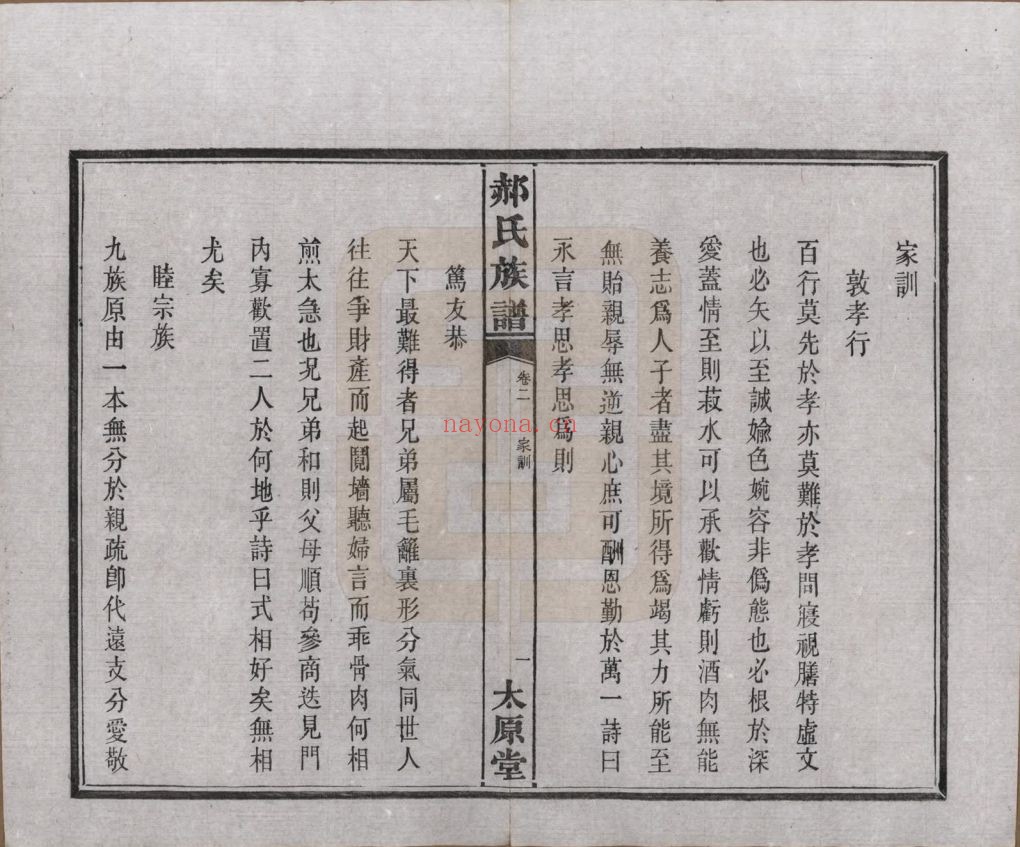 家訓
敦孝行
百行莫先於孝亦莫難於孝問寢視膳特虛文
也必矢以至誠婾色婉容非僞態也必根於深
愛蓋情至則菽水可以承歡情虧則酒肉無能
養志爲人子者盡其境所得爲竭其力所能至
無貽親辱無逆親心庶可酬恩勤於萬一詩曰
永言孝思孝思爲則
郝氏族譜
卷二
家訓
一
太原堂
篤友恭
天下最難得者兄弟屬毛籬裏形分氣同世人
往往爭財產而起鬩墻聽婦言而乖骨肉何相
煎太急也况兄弟和則父母順苟參商迭見門
內寡歡置二人於何地乎詩曰式相好矣無相
尤矣
睦宗族
九族原由一本無分於親疏卽代遠支分愛敬
nayona.cn